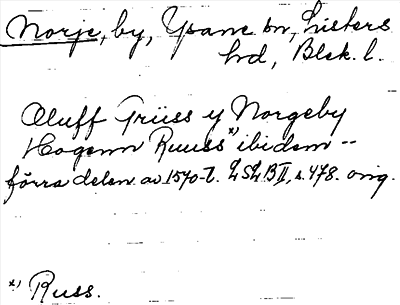 Norje, by, Ysane sn, Listers
hd, Blek. l.
Oluff Trüss y Norgeby
Hogenn Ruuss *) ibidem --
förra delen av 1570-t. LSLBII, s. 478. orig.
*) Russ.